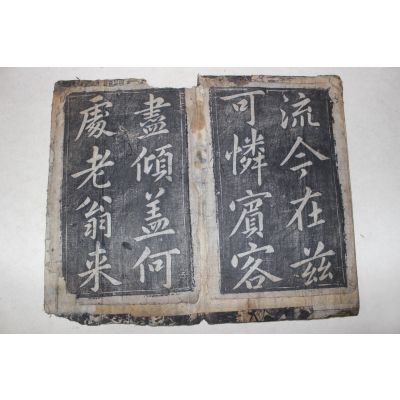 流今在兹
可憐賓客
盡傾蓋何
處老翁来